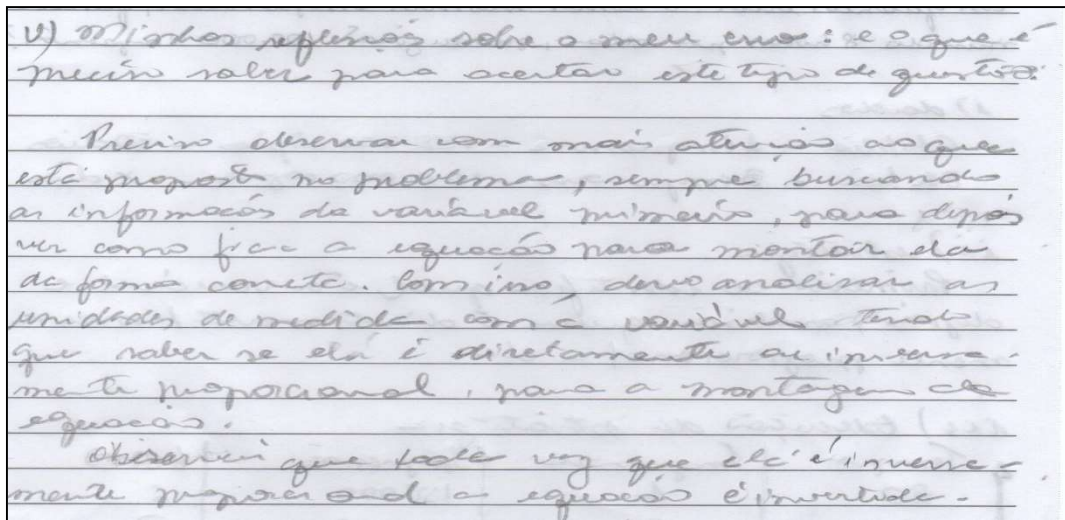 V) Minhas reflexões sobre o meu erro: e o que é
preciso saber para acertar este tipo de questão:
Preciso observar com mais atenção ao que
está proposto no problema, sempre buscando
as informações da variável primeiro, para depois
ver como fica a equação para montar ela
da forma correta. Com isso, devo analisar as
unidades de medida com a variável tendo
que saber se ela é diretamente ou inversa-
mente proporcional, para a montagem da
equação.
Observei que toda vez que ela é inversa-
mente proporcional a equação é invertida.